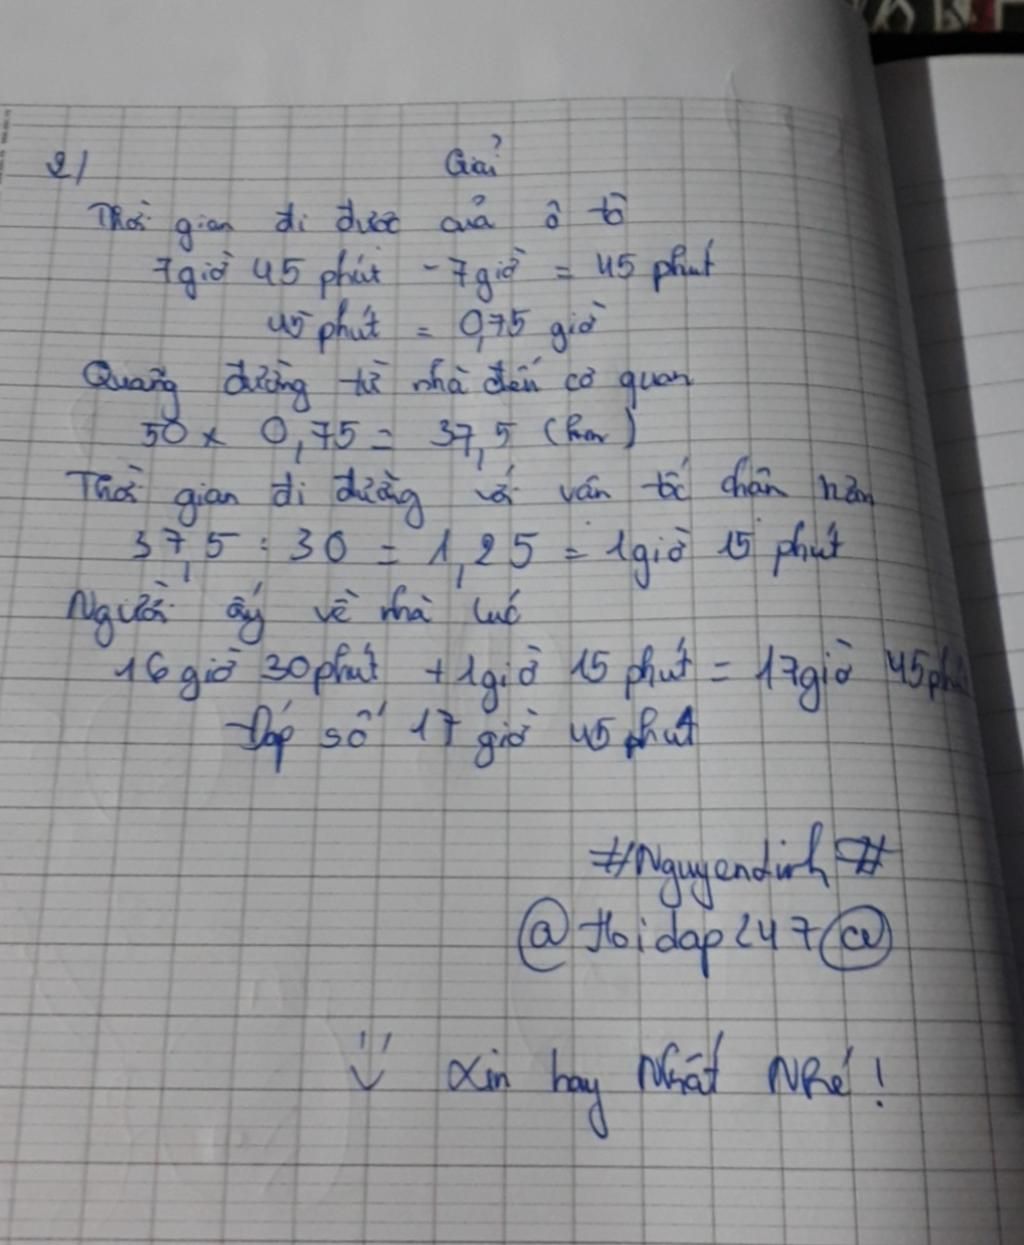 2/ Giải
Thời gian đi được của ô tô
7giờ 45 phút - 7giờ = 45 phút
45 phút = 0,75 giờ
Quãng đường từ nhà đến cơ quan
50 x 0,75 = 37,5 (km)
Thời gian đi đường với vận tốc chậm hơn
37,5 : 30 = 1,25 = 1giờ 15 phút
Người ấy về nhà lúc
16 giờ 30 phút + 1giờ 15 phút = 17giờ 45 phú
Đáp số 17 giờ 45 phút
#Nguyendinh#
@Hoidap247@
Xin hay Nhất Nhé!